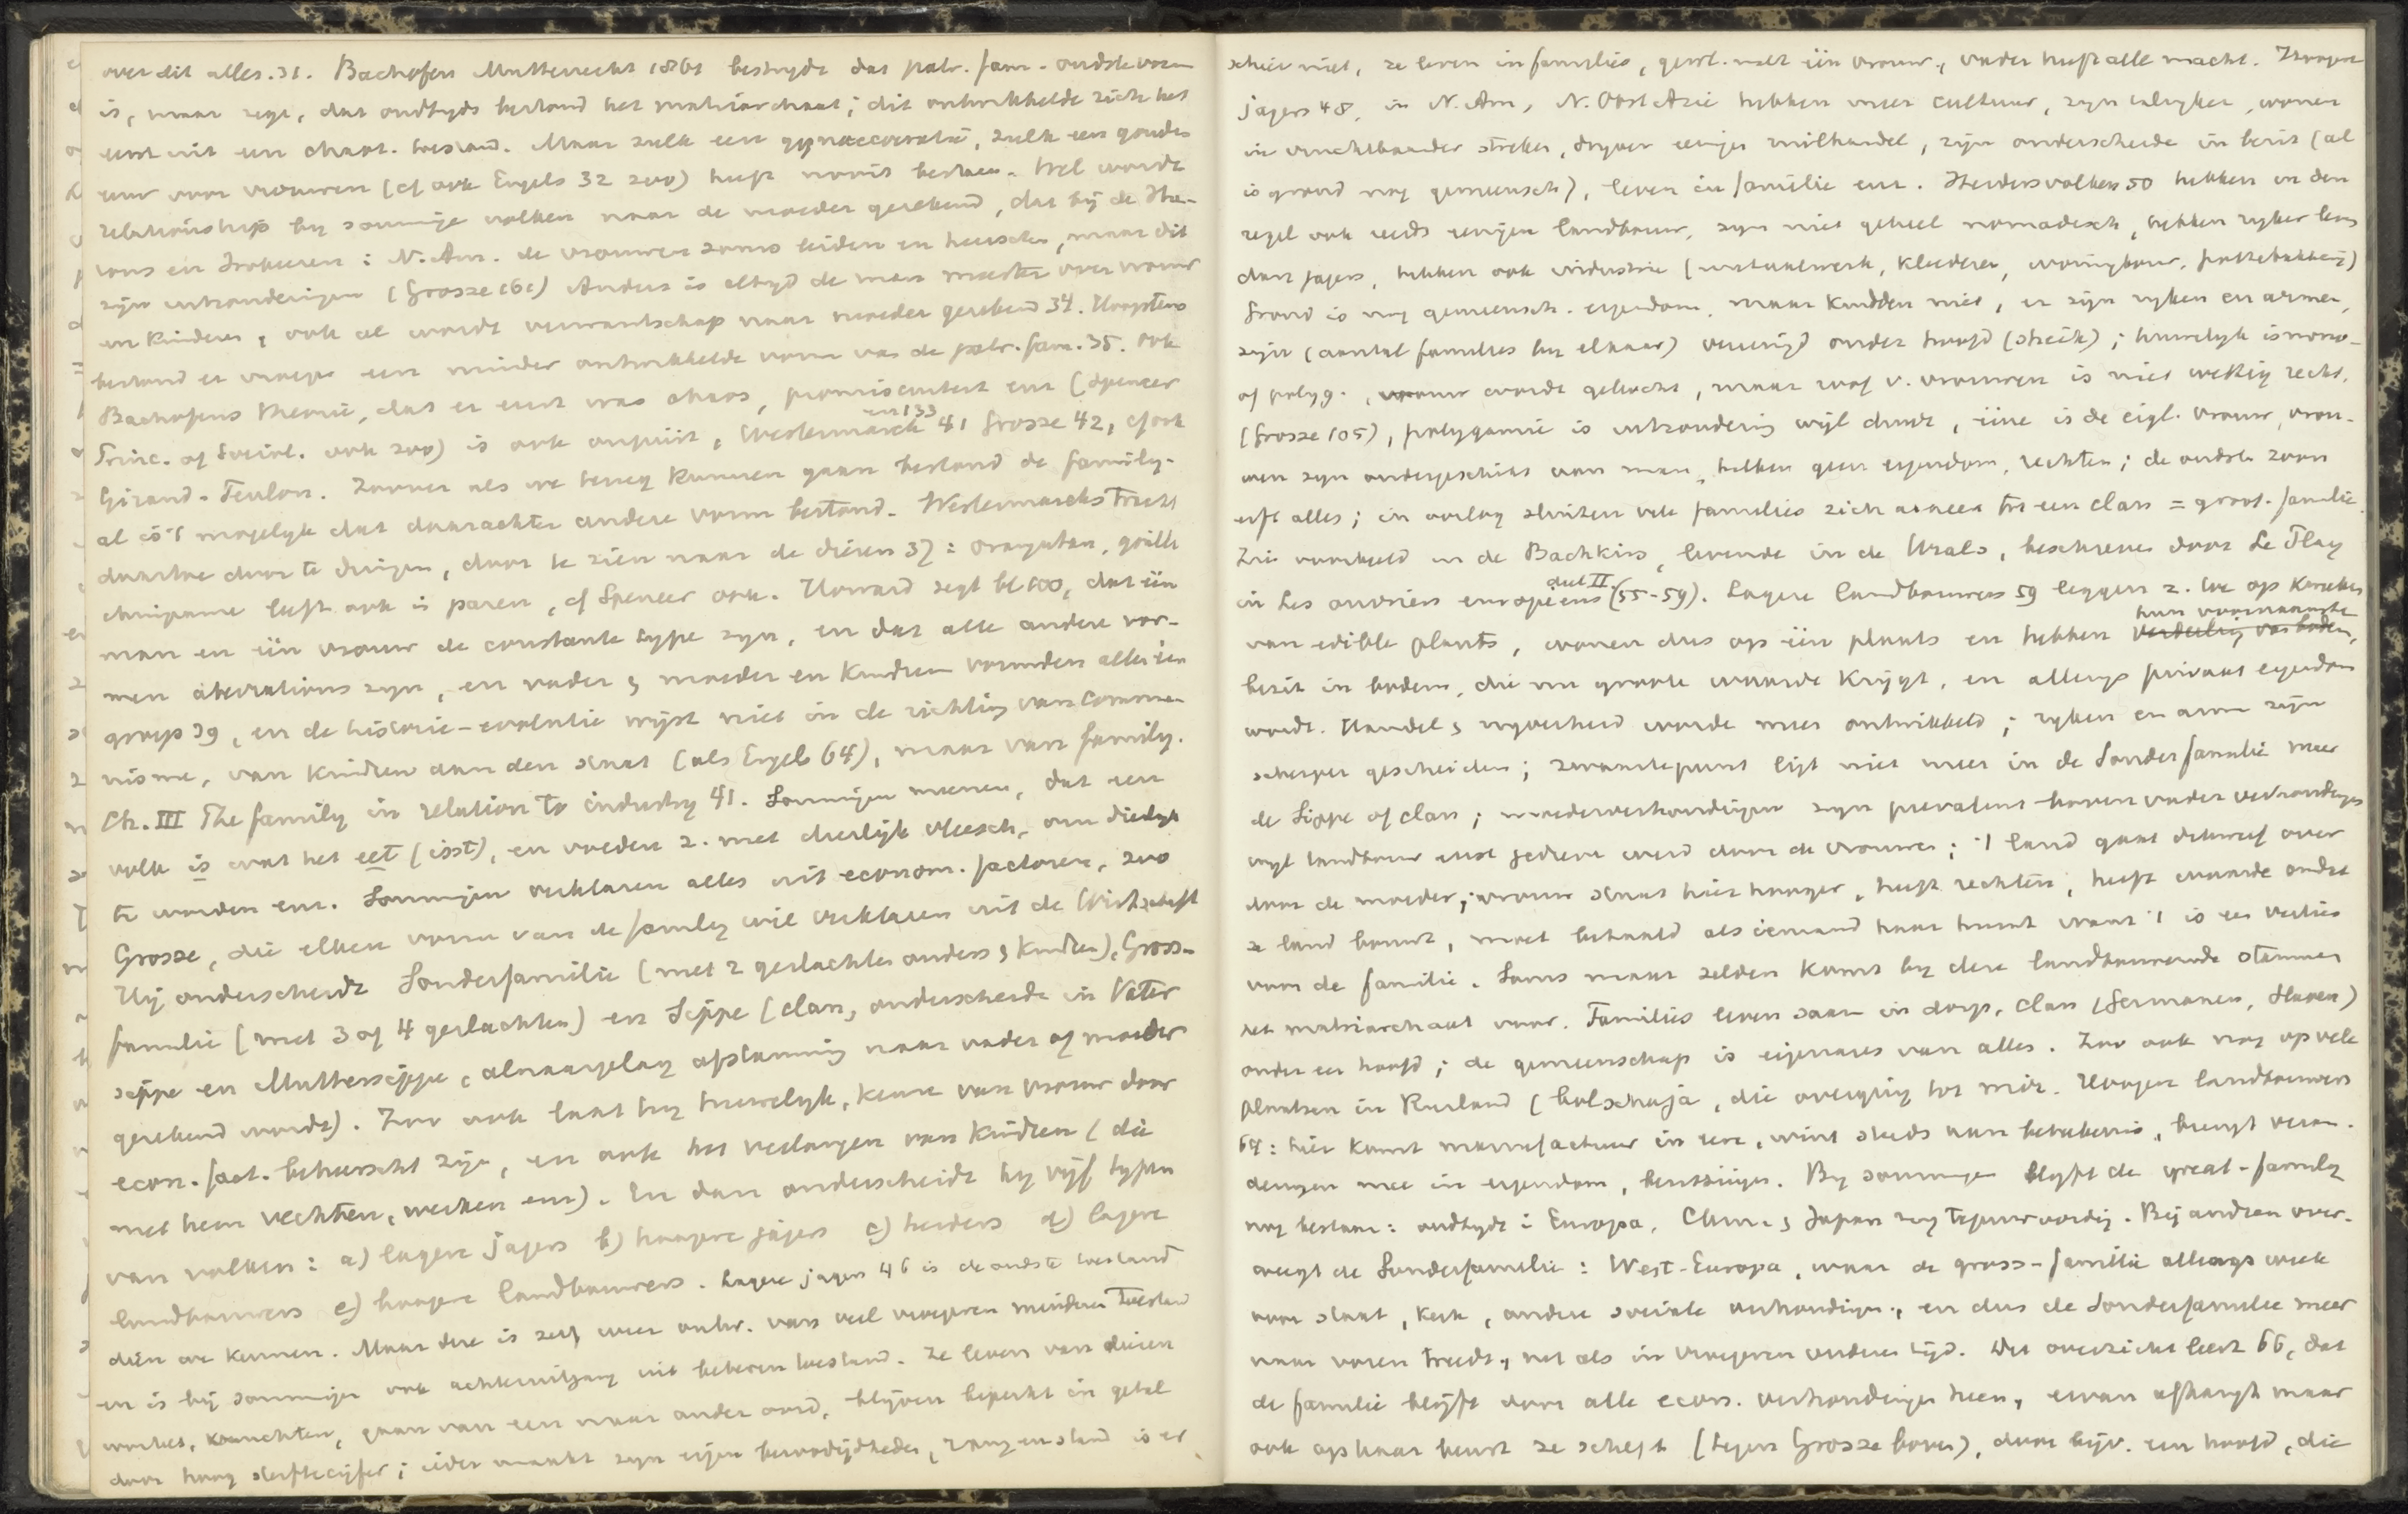 over dit alles. 31. Bachofen Mutterrecht 1861 bestrydt dat patr. fam. oudste vorm
is, maar zegt, dat oudtyds bestond het matriarchaat; dit ontwikkelde zich het
eerst uit een chaot. toestand. Maar zulk een gynaecocratie, zulk een gouden
eeuw voor vrouwen (cf ook Engels 32 zoo) heeft nooit bestaan. Wel wordt
relationship by sommige volken naar de moeder gerekend, dat bij de Hu-
rons en Irokezen: N. Am. de vrouwen soms leiden en heerschen, maar dit
zijn uitzonderingen (Grosse 161) Anders is altyd de man meester over vrouw
en kinderen, ook al wordt verwantschap naar moeder gerekend 34. Hoogstens
bestond er vroeger een minder ontwikkelde vorm van de patr. fam. 35. Ook
Bachofens theorie, dat er eerst was chaos, promiscuiteit enz (Spencer
Princ. of Sociol. ook zoo) is ook onjuist, Westermarck en 133 41 Grosse 42, cf ook
Giraud-Teulon. Zoover als we terug kunnen gaan bestond de family.
al is 't mogelyk dat daarachter andere vorm bestond. Westermarck tracht
daartoe door te dringen, door te zien naar de dieren 37: orangutan, gorilla
chimpanse leeft ook in paren, cf Spencer ook. Howard zegt bl 100, dat één
man en één vrouw de constante type zyn, en dat alle andere vor-
men aberrations zyn, en vader, moeder en kindren vormden altijd een
groep 39, en de historie-evolutie wijst niet in de richting van commu-
nisme, van kindren aan den staat (als Engels 64), maar van family.
Ch. III The family in relation to industry 41. Sommigen meenen, dat een
volk is wat het eet (isst), en voeden z. met dierlijk vleesch, om dierlyk
te worden enz. Sommigen verklaren alles uit econom. factoren, zoo
Grosse, die elken vorm van de family wil verklaren uit de Wirtschaft
Hij onderscheidt Sonderfamilie (met 2 geslachten ouders, kindren), Gross-
familie (met 3 of 4 geslachten) en Sippe (clan, onderscheide in Vater
sippe en Muttersippe, alnaargelang afstamming naar vader of moeder
gerekend wordt). Zoo ook laat hy huwelyk, keuze van vrouw door
econ. fact. beheerscht zijn, en ook het verlangen naar kindren (die
met hem vechten, werken enz). En dan onderscheidt hy vijf typen
van volken: a) lagere jagers b) hoogere jagers c) herders d) lagere
landbouwers e) hoogere landbouwers. Lagere jagers 46 is de oudste toestand
dien we kennen. Maar deze is zelf weer ontw. van veel vroegeren minderen toestand
en is bij sommigen ook achteruitgang uit beteren toestand. Ze leven van dieren
wortels, vruchten, gaan van een naar ander oord, blijven beperkt in getal
door hoog sterftecijfer; ieder maakt zyn eigen benoodigdheden, rang en stand is er
schier niet, ze leven in families, gewl. met één vrouw, vader heeft alle macht. Hoogere
jagers 48, in N. Am, N. Oost Azië hebben meer cultuur, zyn talryker, wonen
in vruchtbaarder streken, dryven eenigen ruilhandel, zijn onderscheide in bezit (al
is grond nog gemeensch), leven in familie enz. Herdersvolken 50 hebben in den
regel ook reeds eenigen landbouw, zyn niet geheel nomadisch, hebben ryker leven
dan jagers, hebben ook industrie (metaalwerk, kleederen, woningbouw, pottebakkerij)
Grond is nog gemeensch. eigendom, maar kudden niet, er zijn ryken en armen,
zijn (aantal families by elkaar) vereenigd onder hoofd (sheik); huwelyk is mono-
of polyg., vrouw wordt gekocht, maar roof v. vrouwen is niet wettig recht.
(Grosse 105), polygamie is uitzondering wijl duur, ééne is de eigl. vrouw, vrou-
wen zyn ondergeschikt aan man, hebben geen eigendom, rechten; de oudste zoon
erft alles; in oorlog sluiten vele families zich aaneen tot een clan = groot. familie.
Zie voorbeeld in de Bachkirs, levende in de Urals, beschreven door Le Play
in Les ouvriers européens deel II (55-59). Lagere landbouwers 59 leggen z. toe op kweken
van edible plants, wonen dus op één plaats en hebben hun voornaamste
bezit in bodem, die nu groote waarde krijgt, en allengs privaat eigendom
wordt. Handel, nyverheid wordt meer ontwikkeld; ryken en arme zijn
scherper gescheiden; zwaartepunt ligt niet meer in de Sonderfamilie meer
de Sippe of clan; moederverhoudingen zyn prevalent boven vader verhoudingen
wijl landbouw eerst gedreven werd door de vrouwen; 't land gaat dikwerf over
door de moeder; vrouw staat hier hooger, heeft rechten, heeft waarde omdat
ze land bouwt, moet betaald als iemand haar huwt want 't is een verlies
voor de familie. Soms maar zelden komt by deze landbouwende stammen
het matriarchaat voor. Families leven saam in dorp, clan (Germanen, Slaven)
onder een hoofd; de gemeenschap is eigenares van alles. Zoo ook nog op vele
plaatsen in Rusland (bolschaja, die overging tot mir. Hooger landbouwers
64: hier komt manufactuur in eere, wint steeds aan beteekenis, brengt veran-
deringen mee in eigendom, bezittingen. By sommigen blyft de great-family
nog bestaan: oudtyds i Europa, China, Japan nog tegenwoordig. Bij andren over-
weegt de Sonderfamilie: West-Europa, waar de gross-familie allengs week
voor staat, kerk, andere sociale verhoudingen, en dus de Sonderfamilie meer
naar voren treedt, net als in vroegeren anderen tijd. Dit overzicht leert 66, dat
de familie blijft door alle econ. verhoudingen heen, ervan afhangt maar
ook op haar beurt ze schept (tegen Grosse boven), door bijv. een hoofd, die